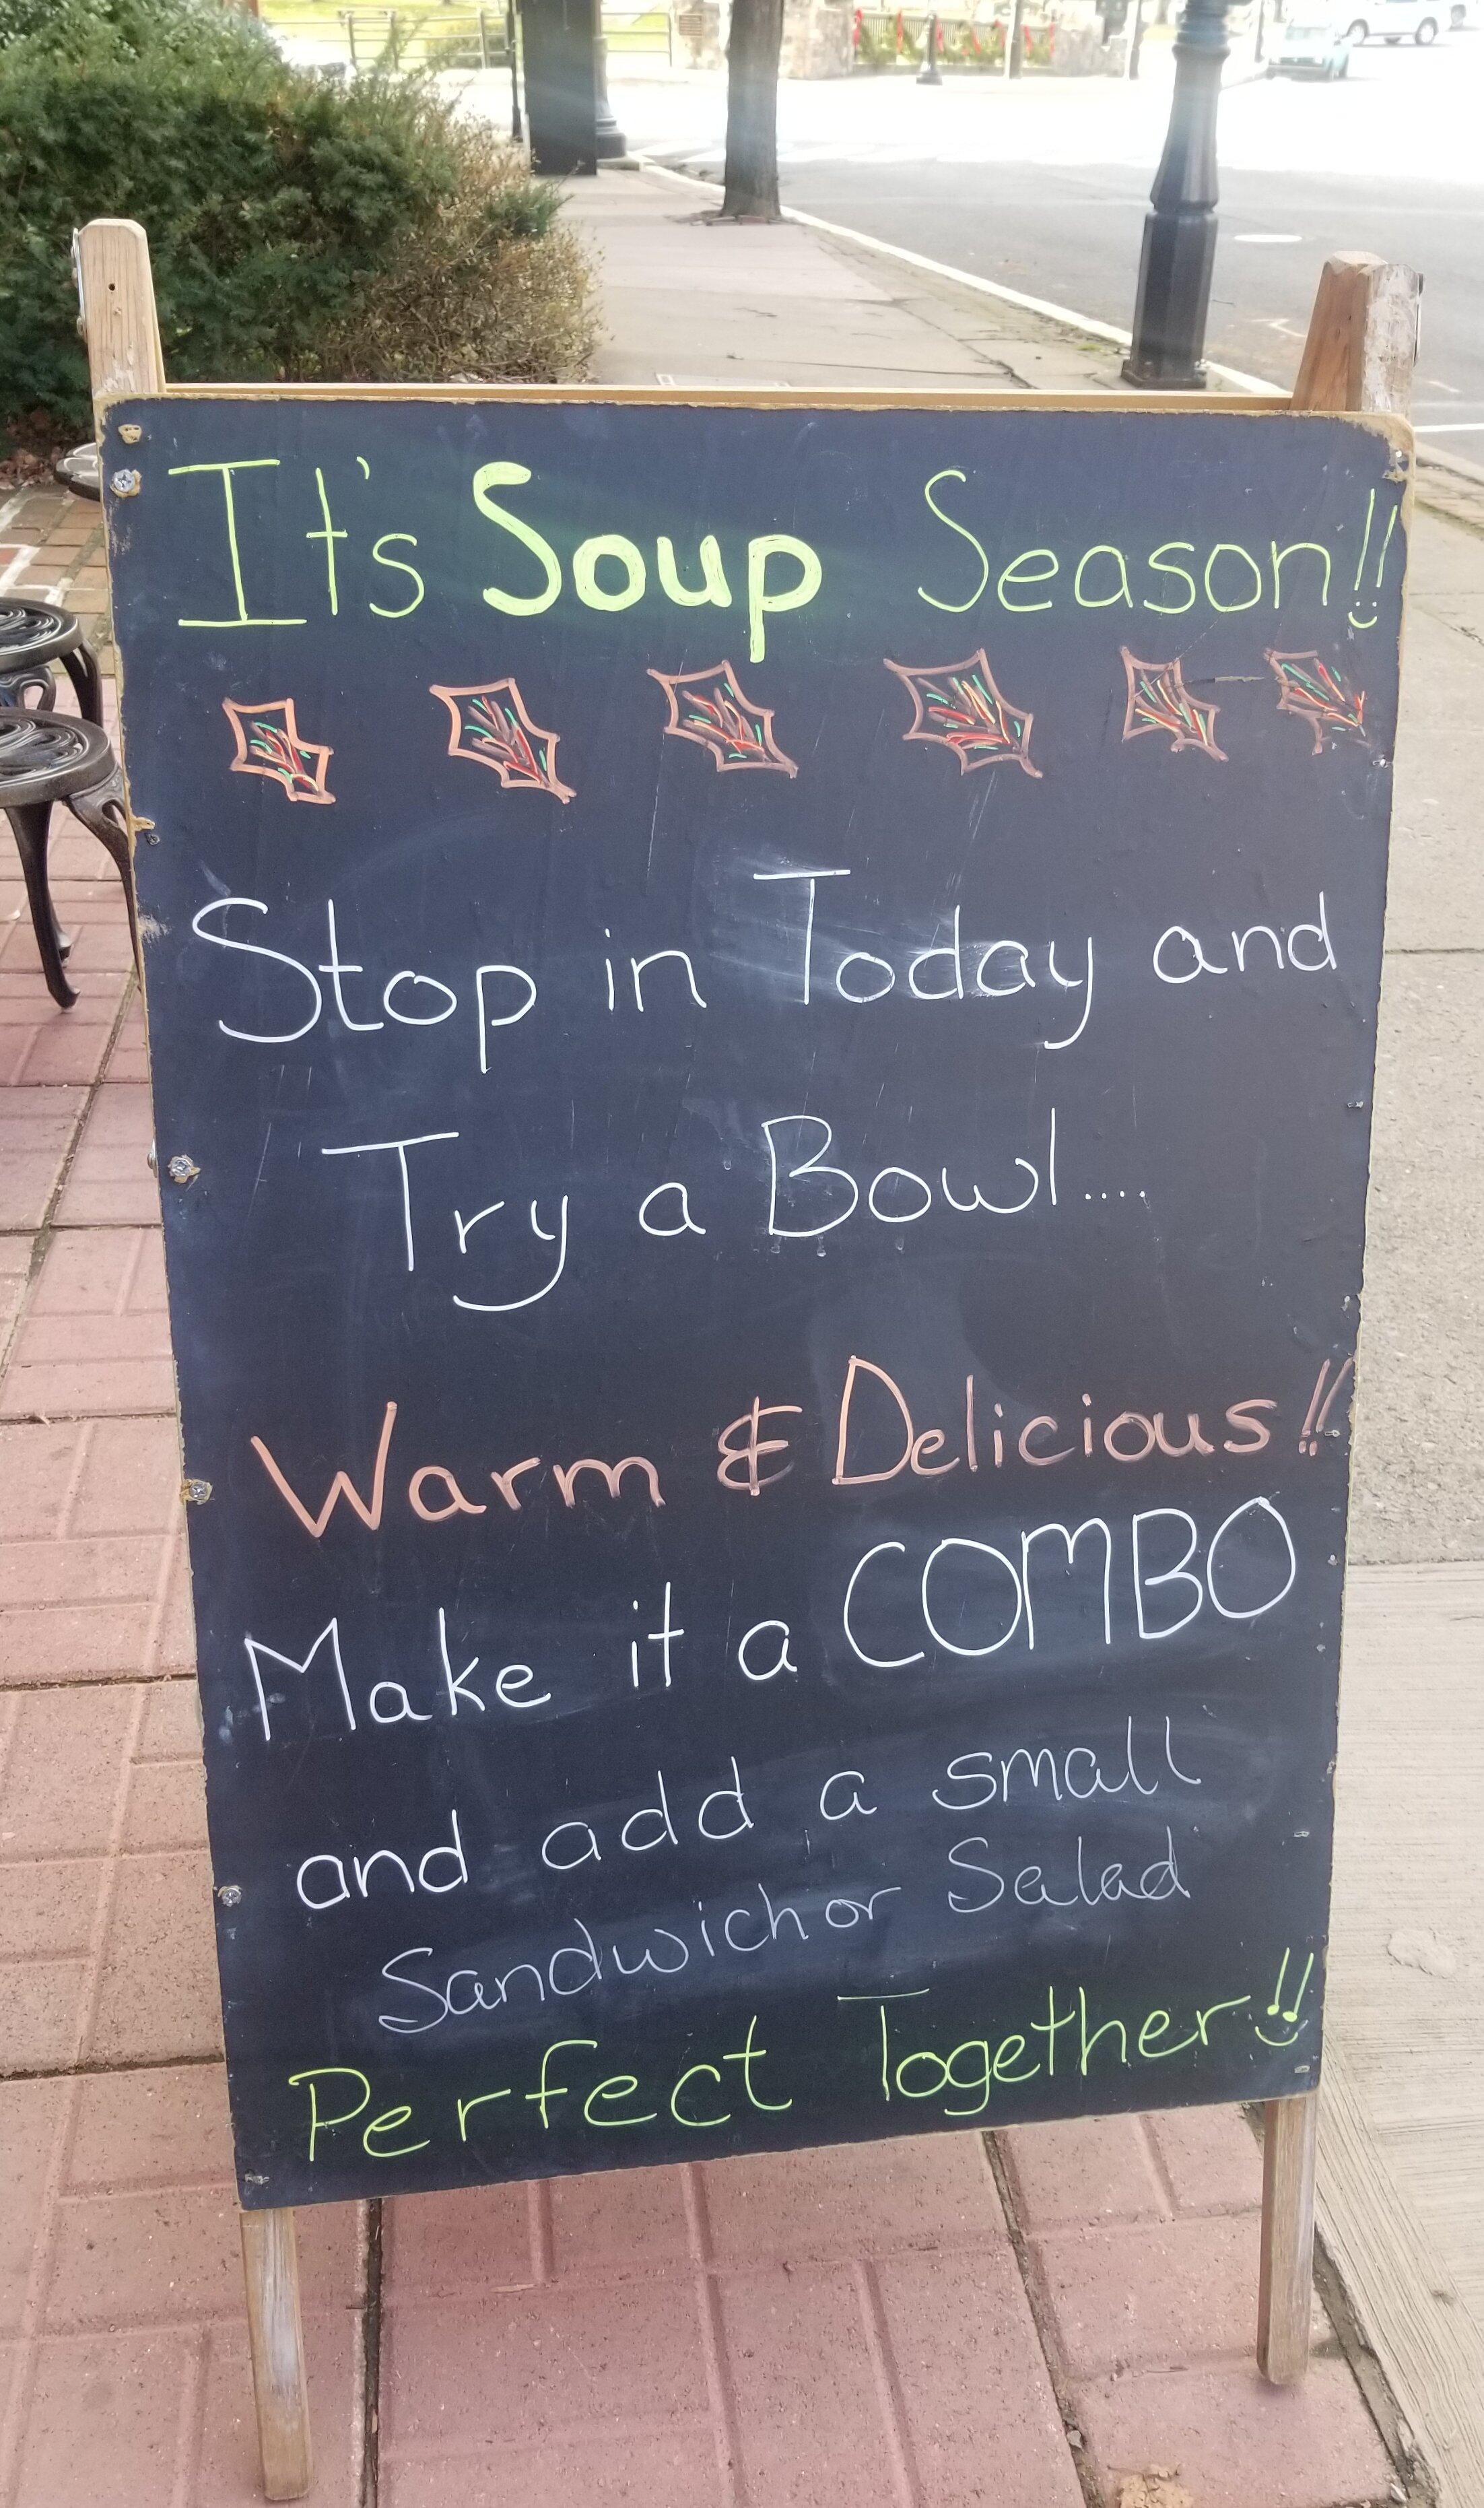 It's Soup Season!!
Stop in Today and
Try a Bowl....
Warm & Delicious!!
Make it a COMBO
and add a small
Sandwich or Salad
Perfect Together!!